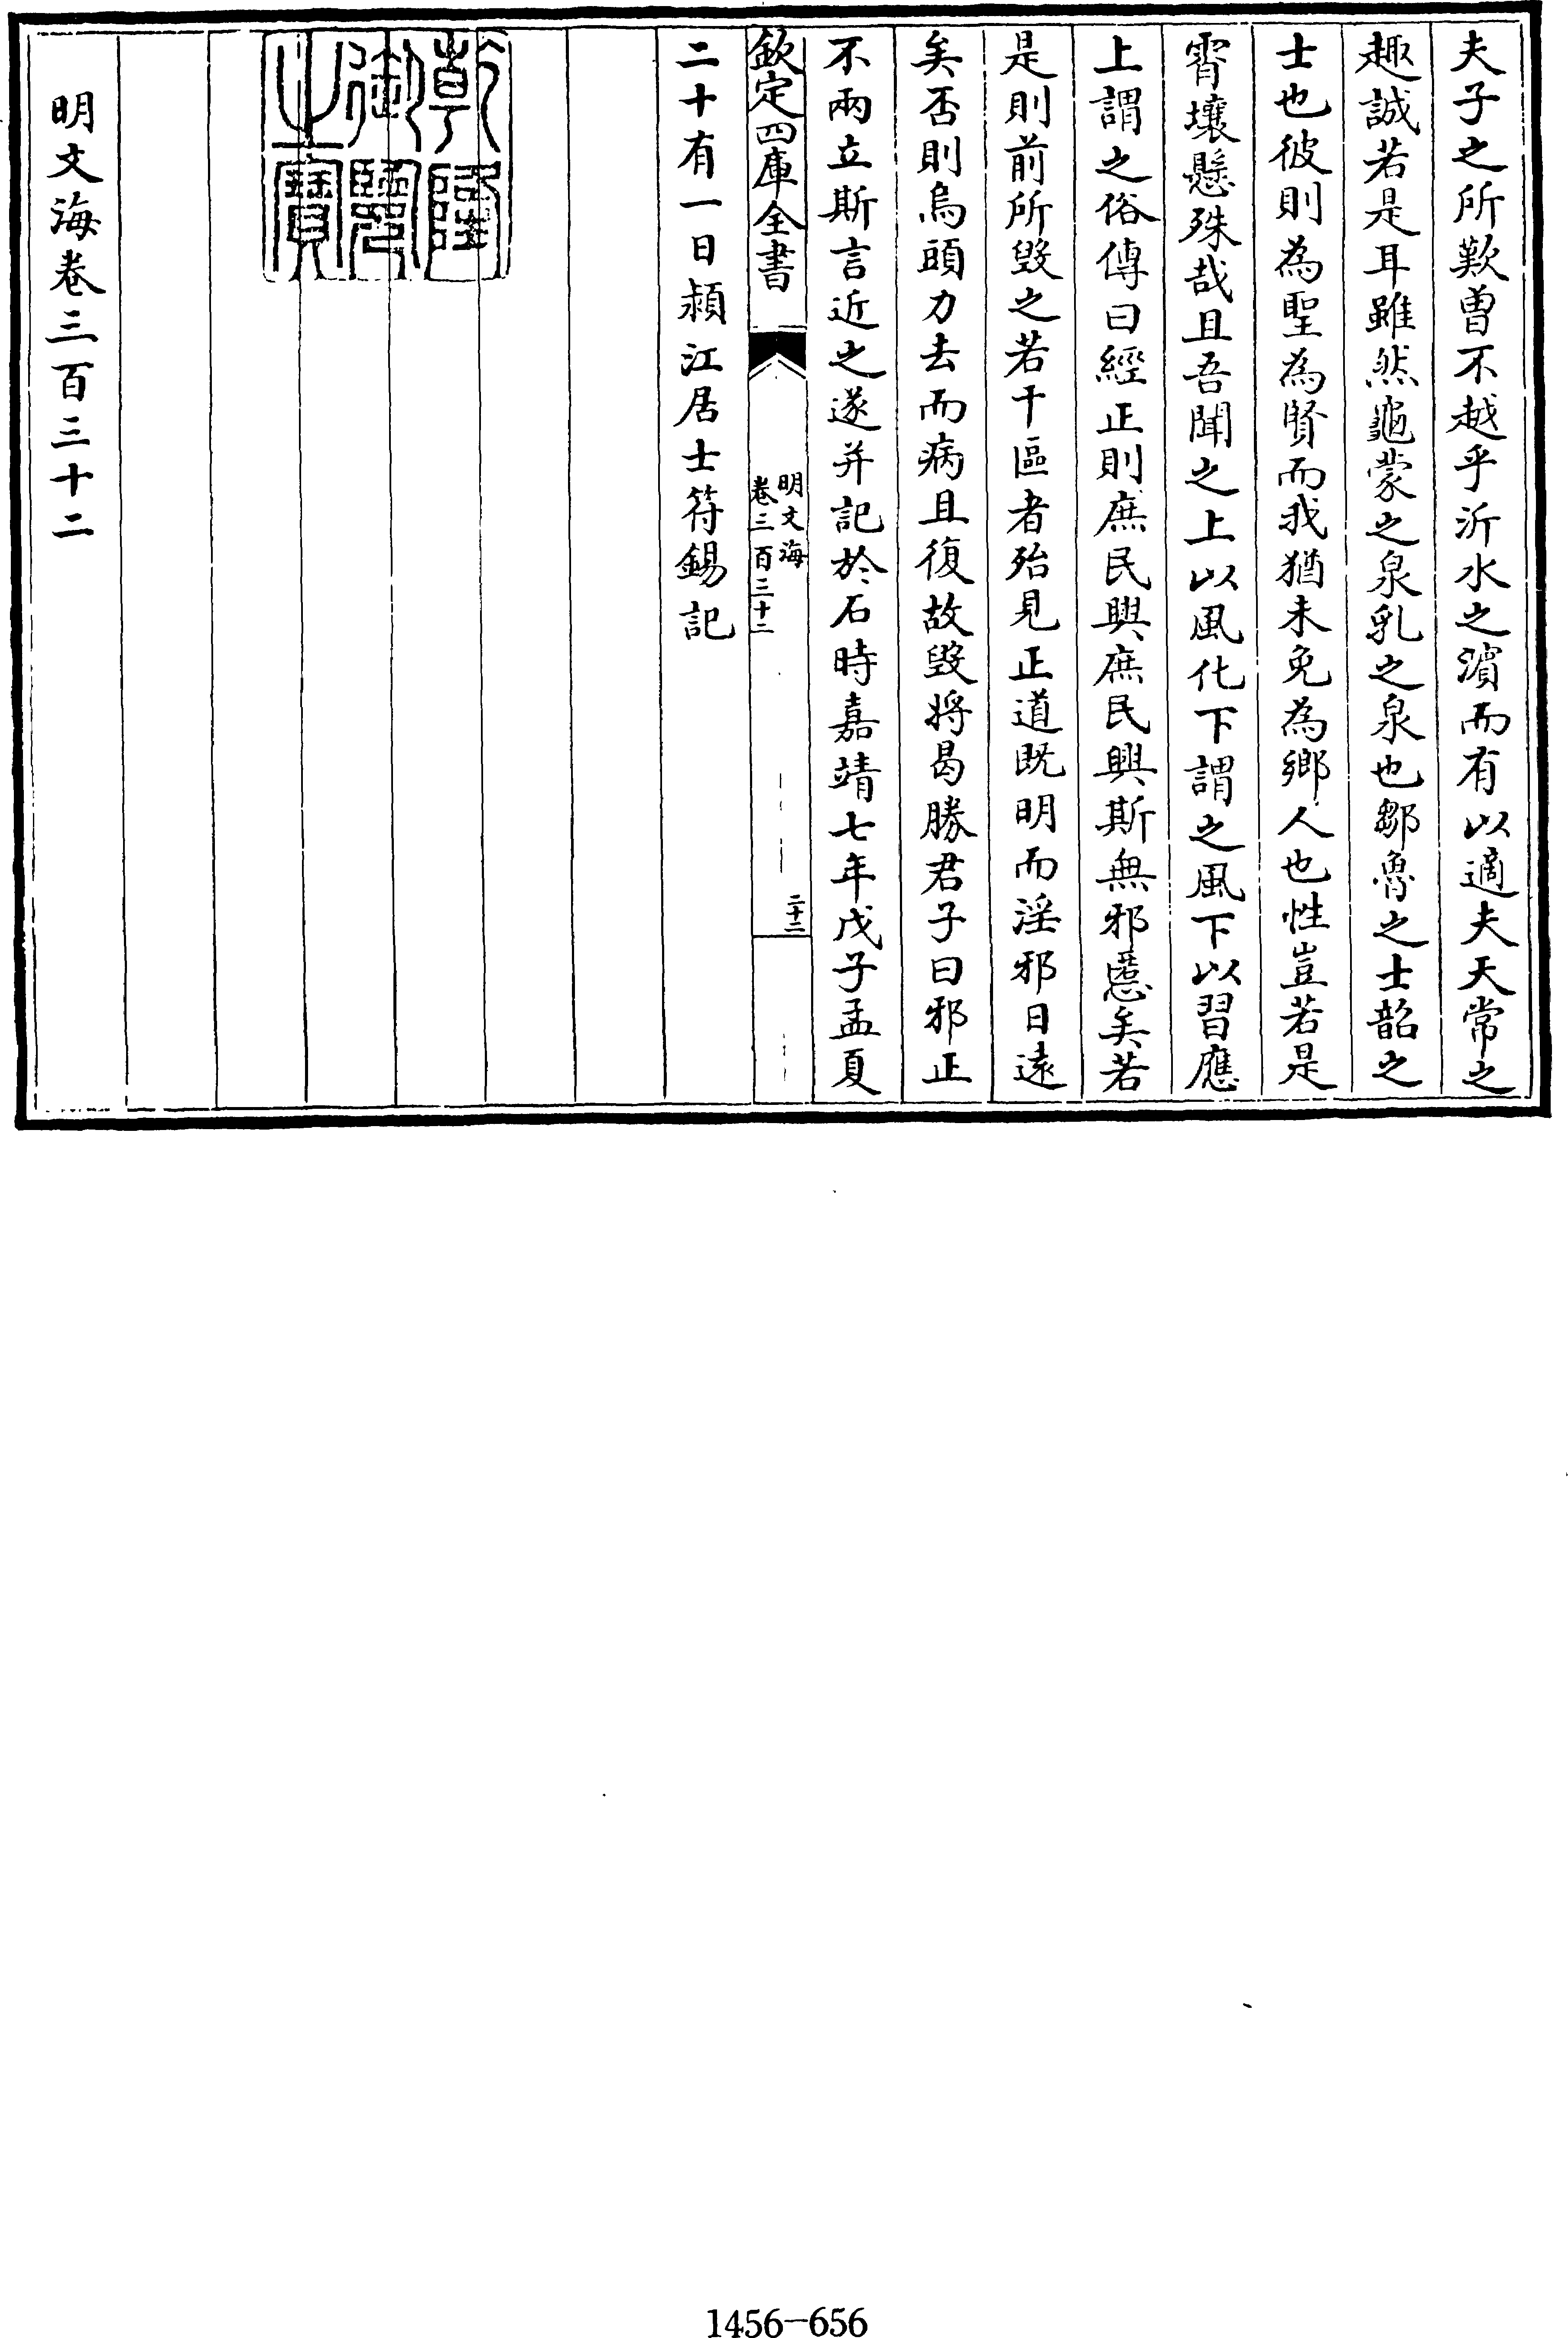 夫子之所歎曽不越乎沂水之濵而有以適夫天常之
趣誠若是耳雖然龜蒙之泉乳之泉也鄒魯之士韶之
士也彼則為聖為賢而我猶未免為鄉人也性豈若是
霄壤懸殊哉且吾聞之上以風化下謂之風下以習應
上謂之俗傳曰經正則庶民興庶民興斯無邪慝矣若
是則前所毀之若干區者殆見正道既明而淫邪日遠
矣否則烏頭力去而病且復故毀將曷勝君子曰邪正
不兩立斯言近之遂并記於石時嘉靖七年戊子孟夏
欽定四庫全書
明文海
卷三百三十二
二十二
二十有一日潁江居士符錫記
乾隆
御覽
之寶
明文海卷三百三十二
1456-656